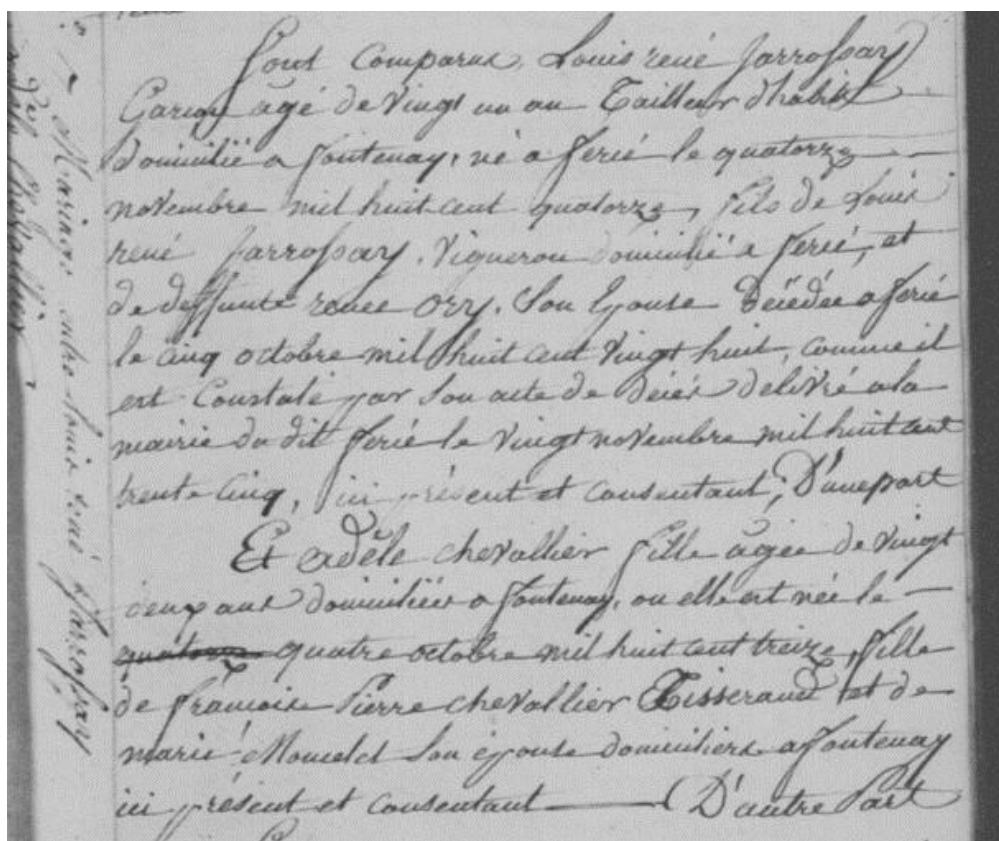 Sont Comparus, Louis rené Jarrossay
Garçon agé de Vingt un an Tailleur d'habits
domicilié a fontenay, né a ferié le quatorze
novembre mil huit cent quatorze, fils de Louis
rené Jarrossay, Vigneron domicilié a ferié, et
de deffunte renee Ory, Son Epouse Décédée a ferié
le cinq octobre mil huit cent Vingt huit, comme il
est Constaté par Son acte de Décès délivré a la
mairie du dit ferié le Vingt novembre mil huit cent
trente cinq, ici présent et consentant, D'une part
Et adèle chevallier fille agée de Vingt
deux ans domiciliée a fontenay, ou elle est née le
quatorze quatre octobre mil huit cent treize, fille
de francois Pierre chevallier Tisserand et de
marie Son épouse domiciliés a fontenay
ici présent et consentant D'autre Part
Mariage entre Louis rené Jarossay
adèle Chevallier